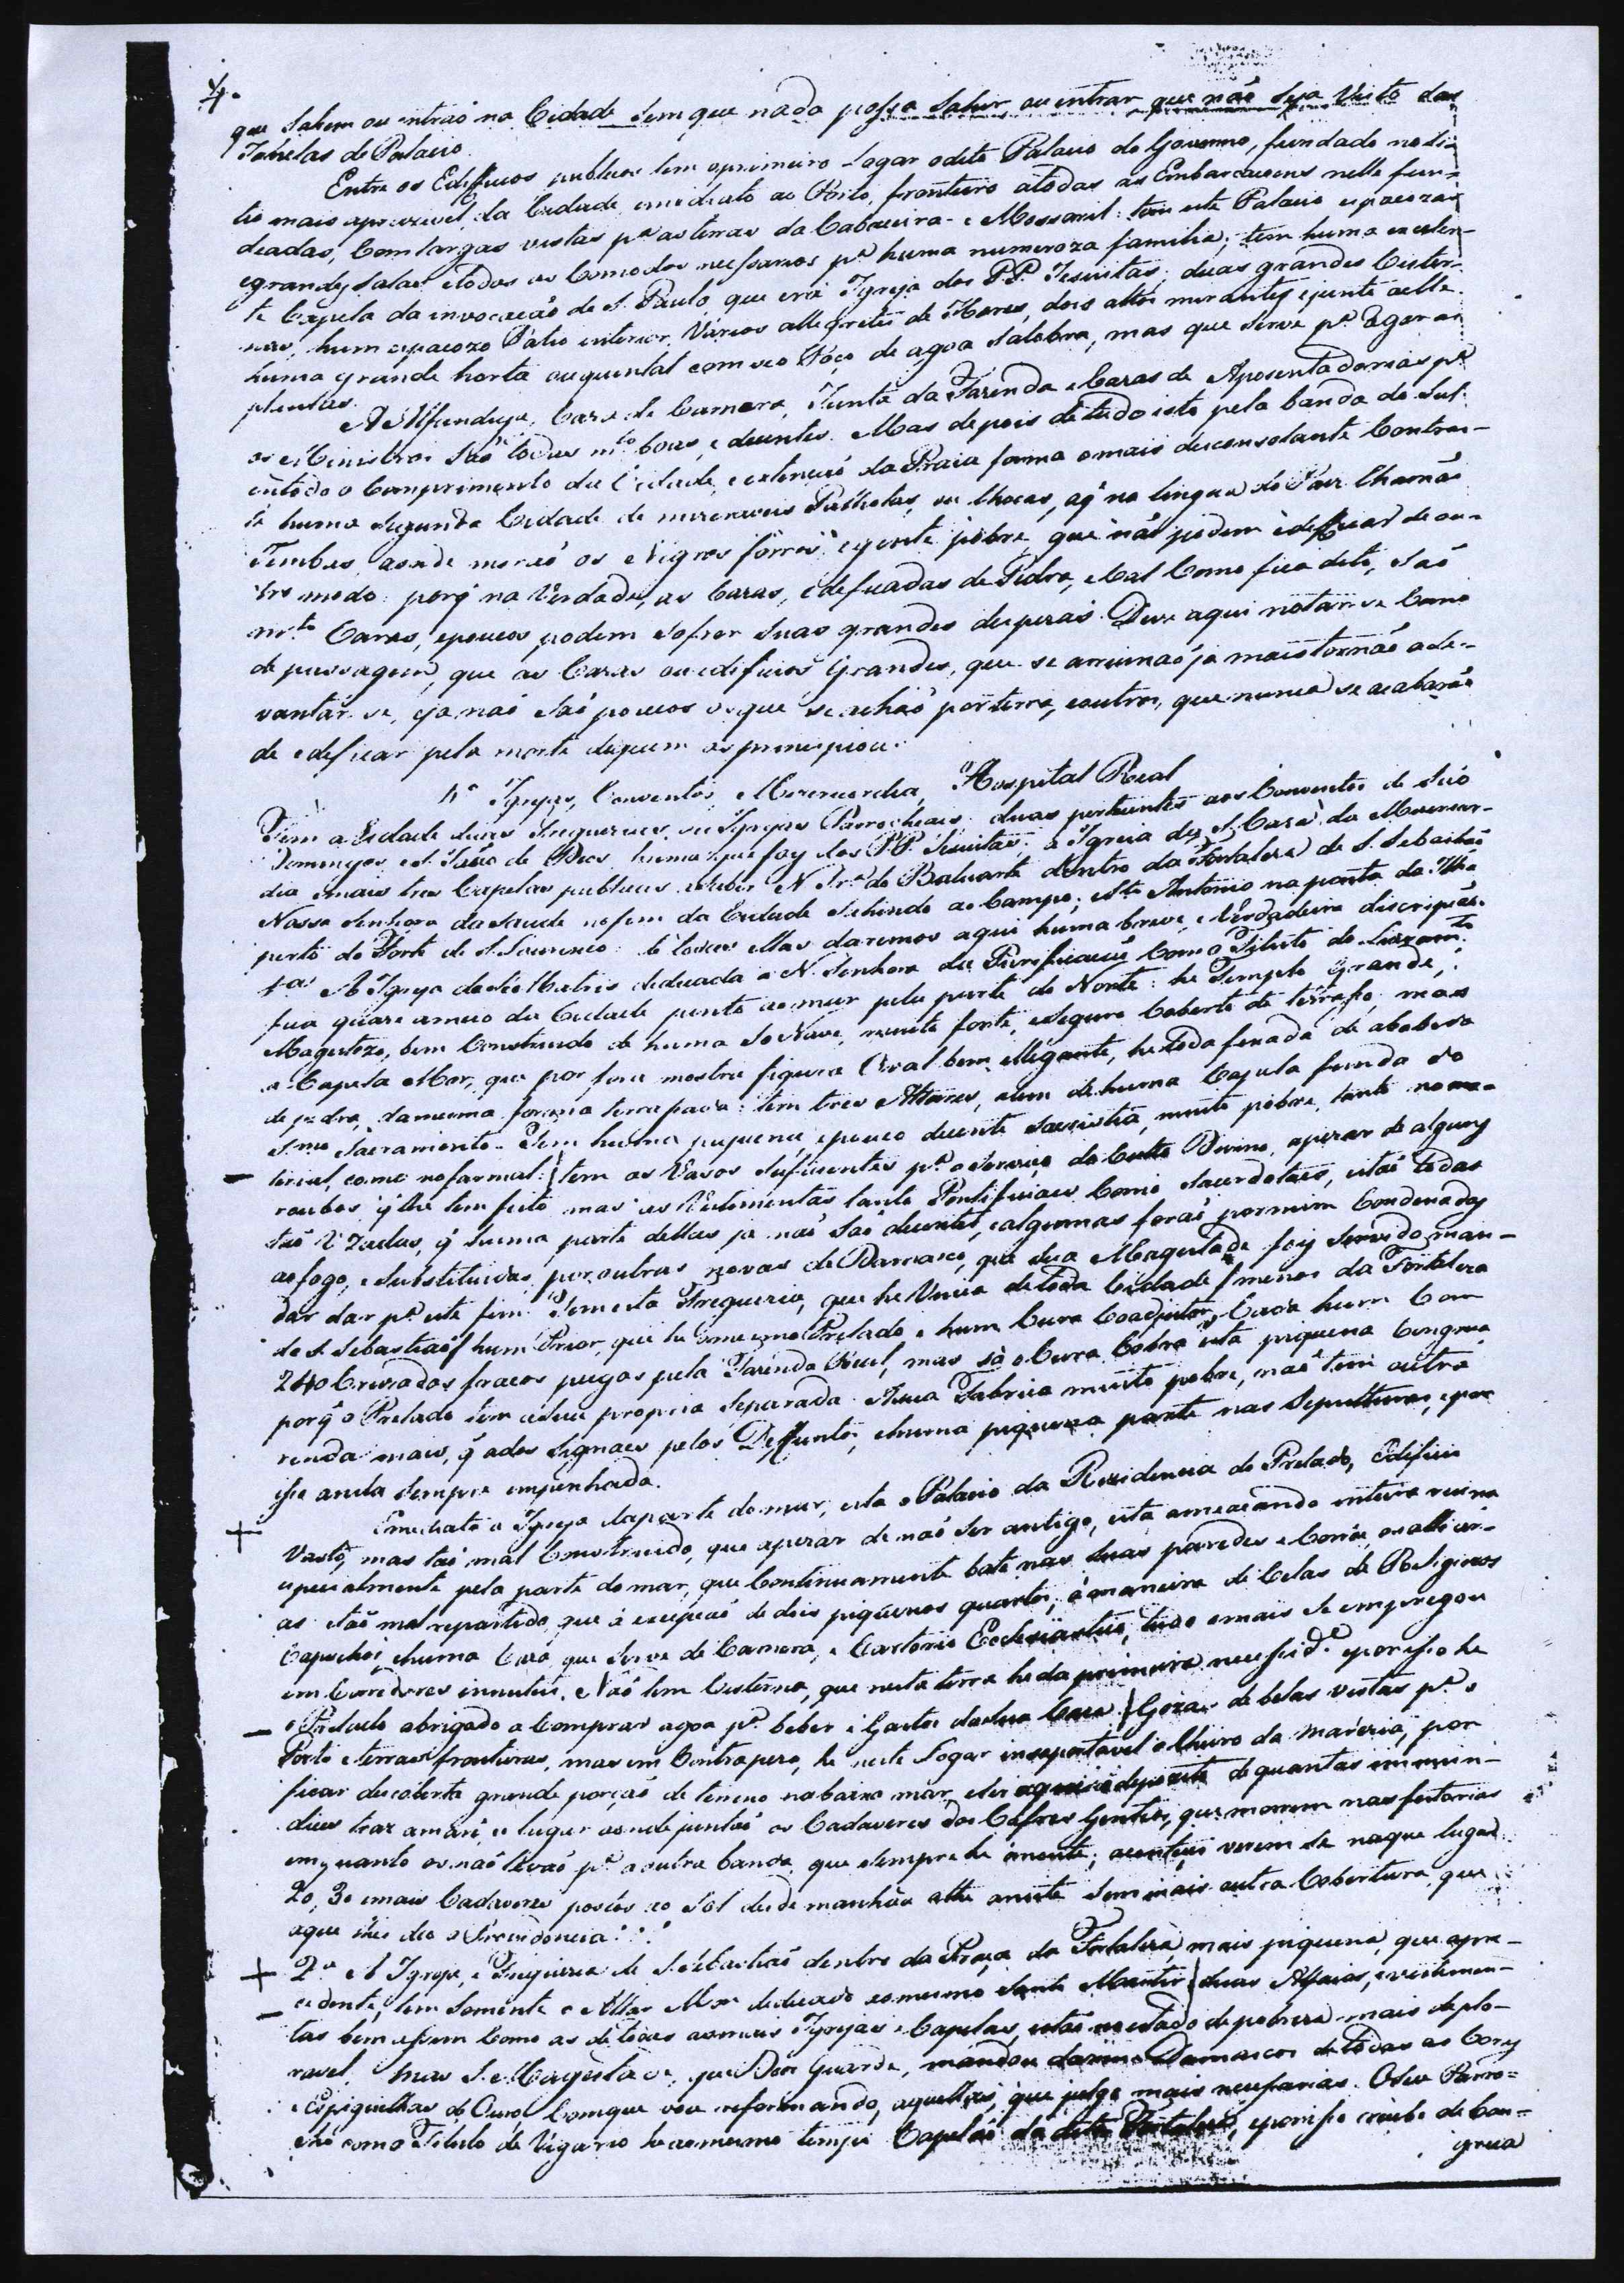 4.
que sahem ou entraõ na Cidade sem que nada possa sahir ou entrar que naõ seja visto das
Janelas do Palacio.
Entre os Edificios publicos tem o primeiro lugar o dito Palacio do Governo, fundado no si-
tio mais aprazivel da Cidade immediato ao Porto, fronteiro a todas as Embarcaçoens nelle fun-
deadas, Com largas vistas pª as terras da Cabaceira e Mossoril: tem este Palacio espaçozas
e grandes Salas e todos os Comodos necessarios pª huma numeroza familia; tem huma excelen-
te Capela da invocaçaõ de S. Paulo, que era Igreja dos PP. Jesuitas; duas grandes Cister-
nas, hum espaçozo Patio interior, Varios allegretes de flores, dois altos mirantes, e junto a elle
huma grande horta ou quintal com seo Poço de agoa salobra, mas que serve pª regar as
plantas.
A Alfandega, Caza de Camara, Junta da Fazenda e Cazas de Aposentadorias pª
os Ministros saõ todas mto boas, e decentes. Mas depois de tudo isto pela banda do Sul
em todo o Comprimento da Cidade, e extensaõ da Praia forma o mais desconsolante Contras-
te huma segunda Cidade de miseraveis Palhotas, ou Chocas, aq̃ na lingua do Paiz Chamaõ
Timbas, aonde moraõ os Negros fôrros e gente pobre, que naõ podem edificar de ou-
tro modo: porq̃ na Verdade, as Cazas, edificadas de Pedra, e Cal Como fica dito, saõ
mto Caras, e poucos podem sofrer suas grandes despezas. Deve aqui notar-se Como
de passagem, que as Cazas ou edificios grandes, que se arruinaõ ja mais tornaõ a le-
vantar-se, e ja naõ saõ poucos os que se achaõ por terra, e outros, que nunca se acabaraõ
de edificar pela morte de quem os principiou.
Igrejas, Conventos, Mizericordia, Hospital Real
Tem a Cidade duas Freguezias ou Igrejas Parrochiaes: duas pertencentes aos Conventos de Saõ
Domingos e S. Joaõ de Deos, huma que foy dos PP. Jesuitas; a Igreja da Sª Caza da Mizericor-
dia e mais tres Capelas publicas a saber N. Srª do Baluarte dentro da Fortaleza de S. Sebastiaõ
Nossa Senhora da Saude no fim da Cidade sahindo ao Campo; e Sto Antonio na ponta da Ilha
perto do Forte de S. Lourenço: de todas ellas daremos aqui huma breve, e Verdadeira discripçaõ.
1ª A Igreja da Sé Matriz dedicada a N. Senhora da Purificaçaõ Com o Titulo do Livramto
fica quaze a meio da Cidade junto ao mar pela parte do Norte: he Templo grande,
Magestozo, bem Construido de huma só Nave, muito forte, e seguro Coberto de terrasso, mas
a Capela Mor, que por fora mostra figura Oval bem ellegante, he toda fexada de abobeda
de pedra, da mesma forma terrapada: tem tres Altares, alem de huma Capela funda do
Smo Sacramento. Tem huma piquena, e pouco decente sacristia, muito pobre, tanto no ma-
terial, como no formal: tem os Vasos suficientes pª o serviço do Culto Divino, apezar de alguns
roubos q̃ lhe tem feito mas as Vestimentas tanto Pontificiaes Como Sacerdotaes, estaõ todas
taõ Uzadas, q̃ huma parte dellas ja naõ saõ decentes, e algumas foraõ por mim Condenadas
ao fogo, e substituidas por outras novas de Damasco, que Sua Magestade foy servido man-
dar dar pª este fim. Tem esta Freguezia, que he Unica de toda Cidade (menos da Fortaleza
de S. Sebastiaõ) hum Prior, que he o mesmo Prelado, e hum Cura Coadjutor, Cada hum Com
240 Cruzados fracos pagos pela Fazenda Real, mas só o Cura Cobra esta piquena Congrua
porq̃ o Prelado tem a sua propria separada. A sua Fabrica muito pobre, naõ tem outra
renda mais, q̃ a dos Signaes pelos Deffuntos, e huma piquena parte nas Sepulturas, e por
isso anda sempre empenhada.
Immediato a Igreja da parte do mar, esta o Palacio da Rezidencia do Prelado, Edificio
Vasto, mas taõ mal Construido, que apezar de naõ ser antigo, está ameaçando inteira ruina
especialmente pela parte do mar, que Continuamente bate nas suas paredes e Corroe os allicer-
as e taõ mal repartido, que á excepçaõ de dois piquenos quartos, á maneira de Celas de Religiosos
Capuchos, e huma Caza que serve de Camara, e Cartorio Ecclesiastico, tudo o mais se empregou
em Corredores innuteis. Naõ tem Cisterna, que nesta terra he da primeira necessidᵉ e por isso he
o Prelado obrigado a Comprar agoa pª beber e Gastos da sua Caza. Goza de belas vistas pª o
Porto e terras fronteiras, mas em Contrapezo, he neste Lugar insuportavel o Cheiro da Marezia, por
ficar descoberta grande porçaõ de terreno na baixa mar, e ser aqui o deposito de quantas immun-
dicias traz a maré, e lugar aonde juntaõ os Cadaveres dos Cafres Gentios, que morrem nas feitorias
em quanto os naõ levaõ pª a outra banda, que sempre he á noute, e acontece verem-se naquele lugar
20, 30 e mais Cadaveres postos ao Sol desde manhãa athe anoute sem mais outra Cobertura, que
a que lhes deo a Providencia...
2ª A Igreja, e Freguezia de S. Sebastiaõ dentro da Praça da Fortaleza, mais piquena, que a pre-
cedente, tem somente o Altar Mor dedicado ao mesmo Santo Martir: suas Alfaias, e vestimen-
tas bem assim Como as de todas as mais Igrejas e Capelas, estaõ no estado de pobreza mais deplo-
ravel, mas S. Magestade, que Deos Guarde, mandou dar-me Damascos de todas as Cores
e Espiguilhas de Ouro, Com que vou reformando, aquellas, que julgo mais necessarias. O seu Parro-
cho com o Titulo de Vigario he ao mesmo tempo Capelaõ da dita Fortaleza, e por isso recebe de Con-
grua